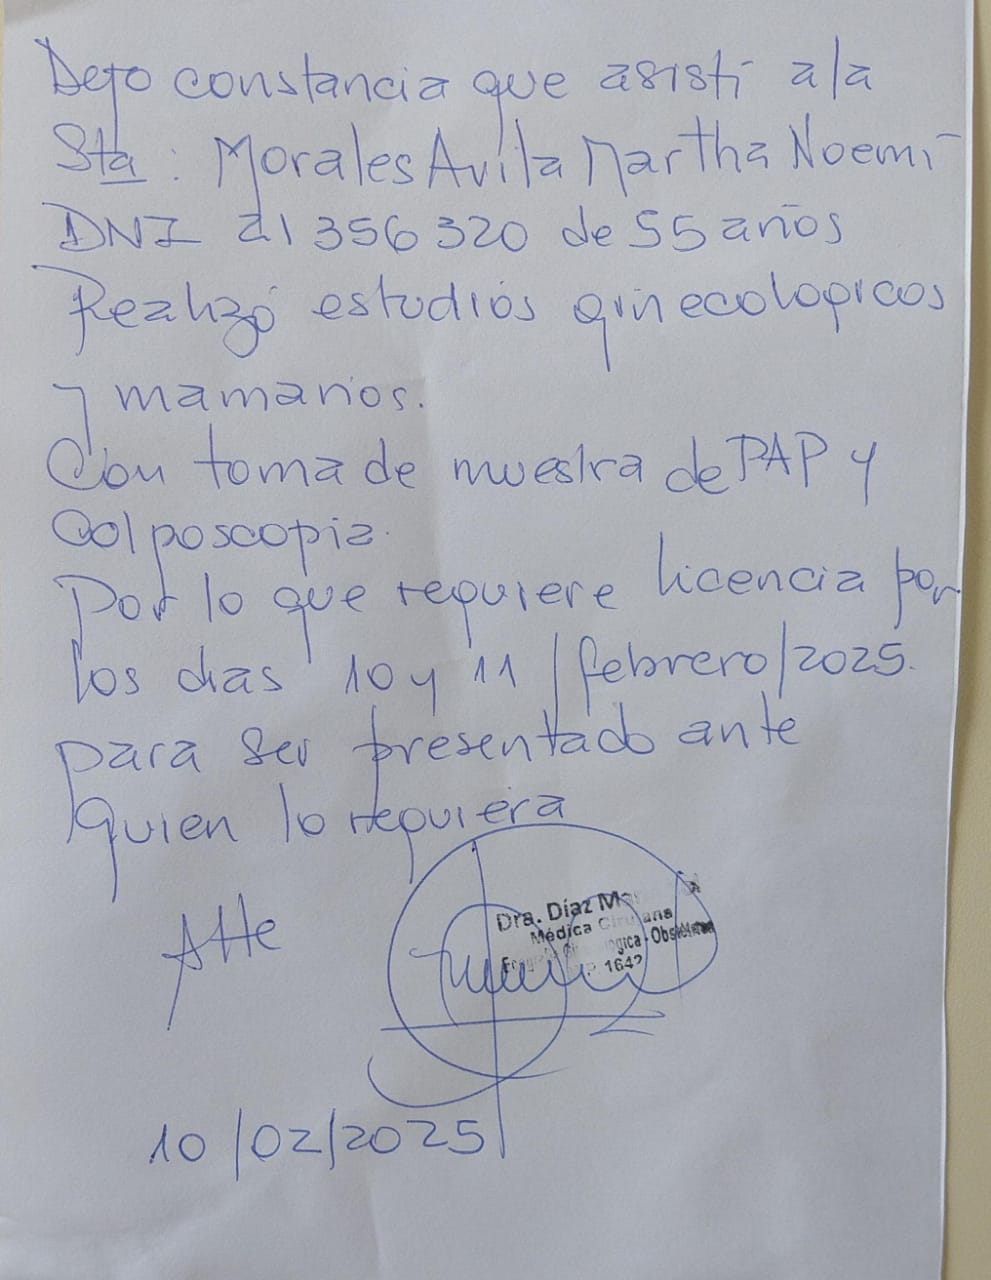 Dejo constancia que asistí a la
Sta: Morales Avila Martha Noemí
DNI 21 356 320 de 55 años
Realizó estudios ginecologicos
y mamarios.
Con toma de muestra de PAP y
Colposcopia.
Por lo que requiere licencia por
los dias 10 y 11 / febrero / 2025.
para ser presentado ante
quien lo requiera
Atte
Dra. Díaz
Médica Cirujana
Obstétrica
1642
10/02/2025